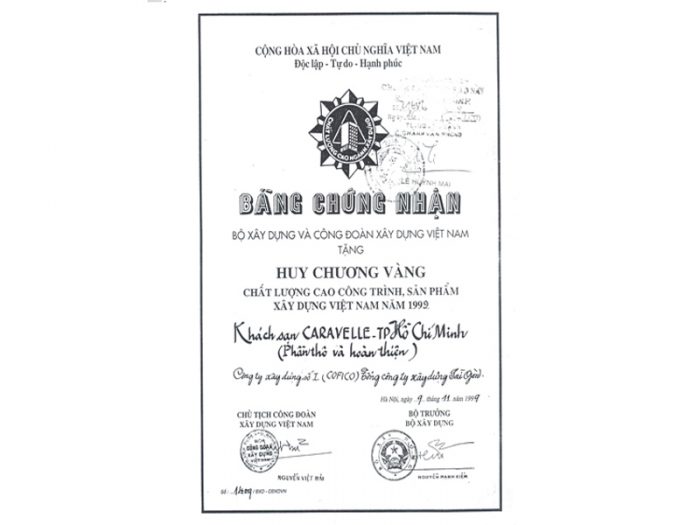 CỘNG HÒA XÃ HỘI CHỦ NGHĨA VIỆT NAM
Độc lập - Tự do - Hạnh phúc
CHẤT LƯỢNG CAO NGÀNH XÂY DỰNG
LÊ HUỲNH MAI
BẰNG CHỨNG NHẬN
BỘ XÂY DỰNG VÀ CÔNG ĐOÀN XÂY DỰNG VIỆT NAM
TẶNG
HUY CHƯƠNG VÀNG
CHẤT LƯỢNG CAO CÔNG TRÌNH, SẢN PHẨM
XÂY DỰNG VIỆT NAM NĂM 1999
Khách sạn CARAVELLE - TP Hồ Chí Minh
(Phần thô và hoàn thiện)
Công ty xây dựng số 1 (COFICO) Tổng công ty xây dựng Sài Gòn.
Hà Nội, ngày 9 tháng 11 năm 1999
CHỦ TỊCH CÔNG ĐOÀN
XÂY DỰNG VIỆT NAM
BỘ TRƯỞNG
BỘ XÂY DỰNG
CÔNG ĐOÀN
XÂY DỰNG
NGUYỄN VIỆT HẢI
NGUYỄN MẠNH KIỂM